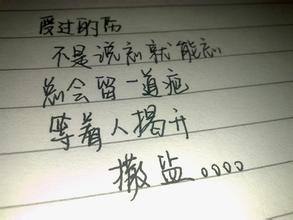 受过的伤
不是说忘就能忘
总会留一道疤
等着人揭开
撒盐。。。。